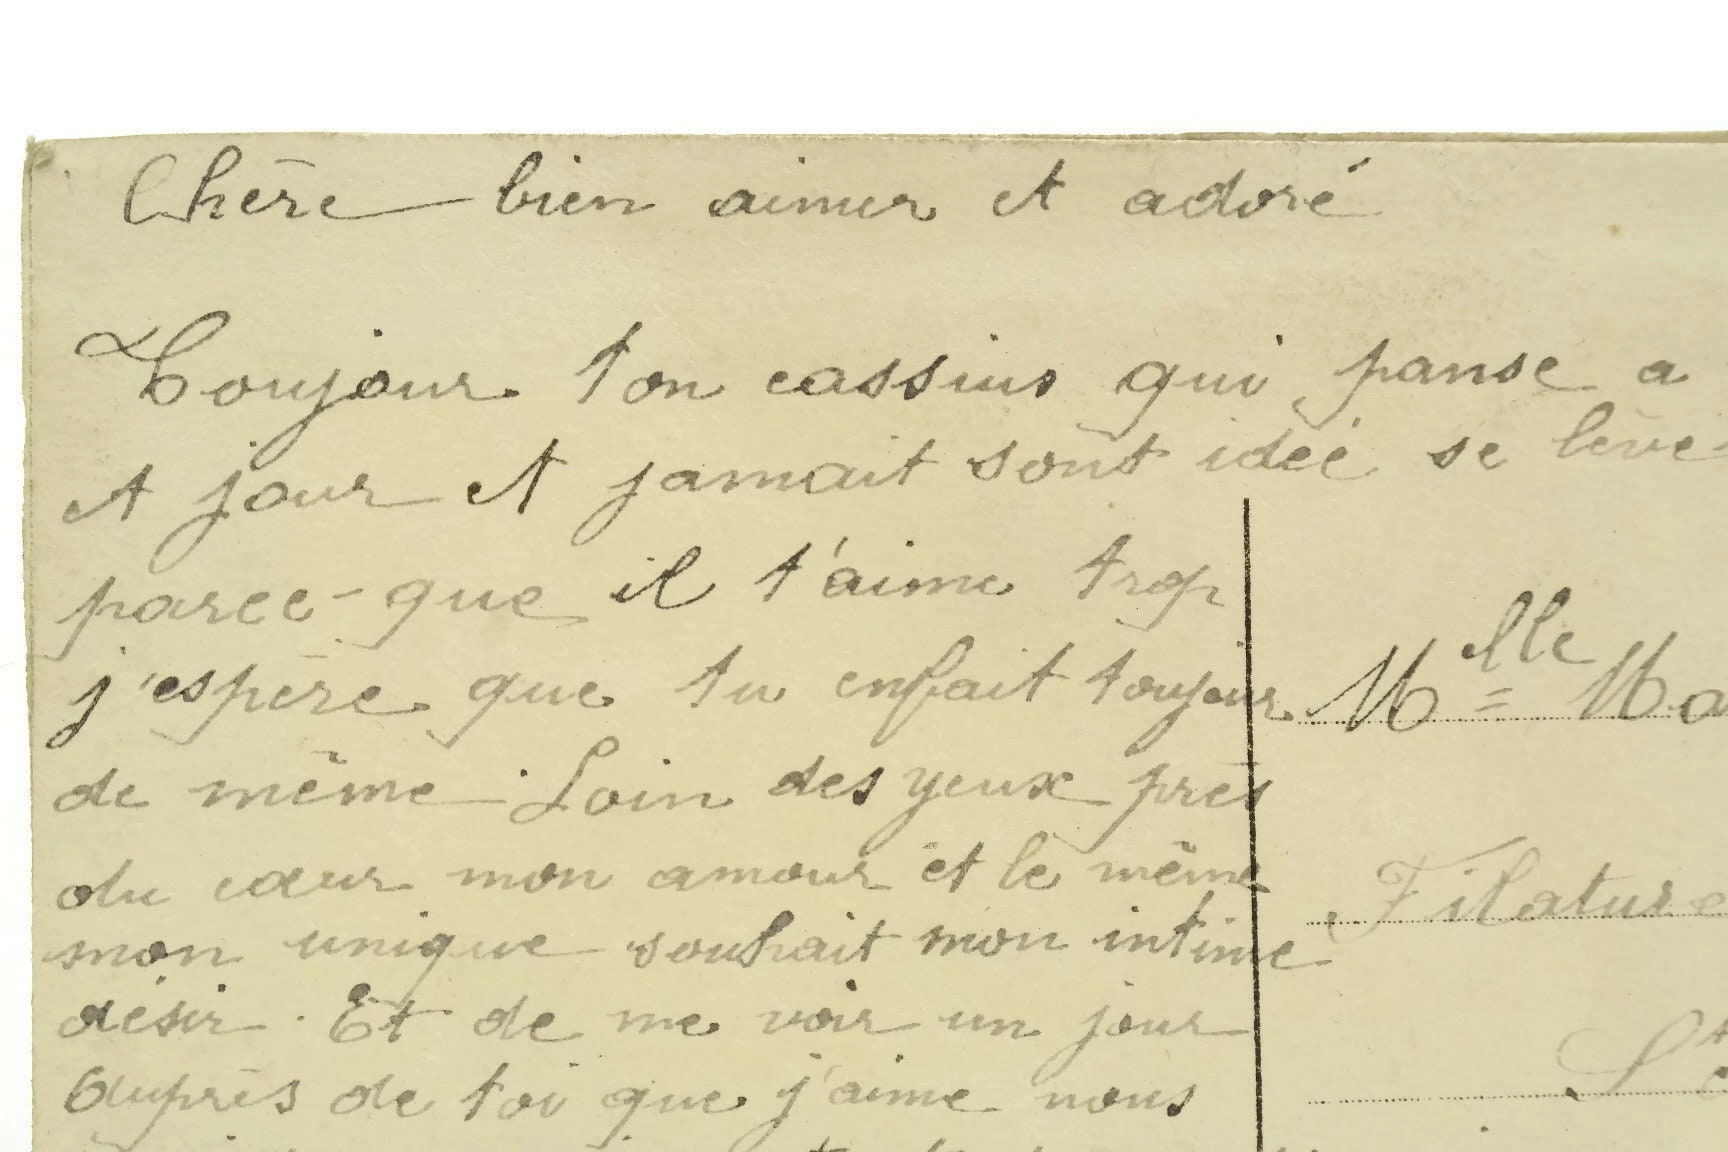 Chère bien aimer et adoré
Toujour ton cassius qui panse a
et jour et jamait sont idée se lève
parce-que il t'aime trop
j'espère que tu enfait toujour
de même Loin des yeux près
du cœur mon amour et le même
mon unique souhait mon intime
désir. Et de me voir un jour
Auprès de toi que j'aime nous
Mlle Ma
Filature
St